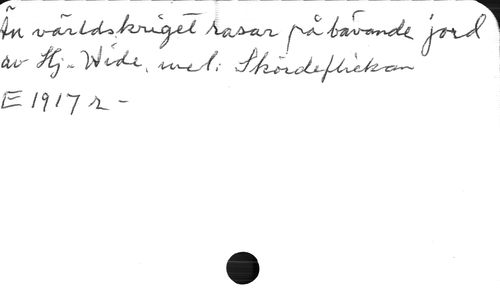 Än världskriget rasar på bävande jord
av Hj. Wide, mel: Skördeflickan
E 1917 r -